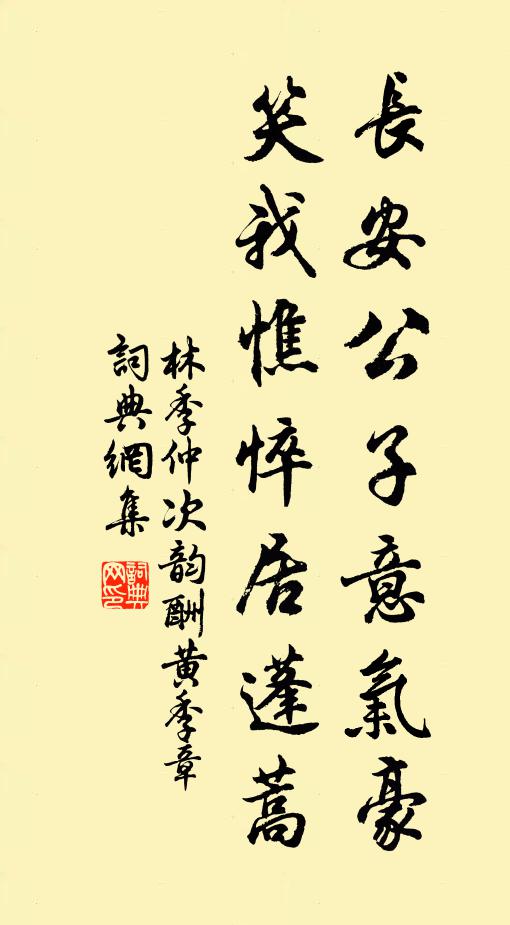 長安公子意氣豪
笑我憔悴居蓬蒿
林季仲次韵酬黄季章
詞典網集
詞典网印